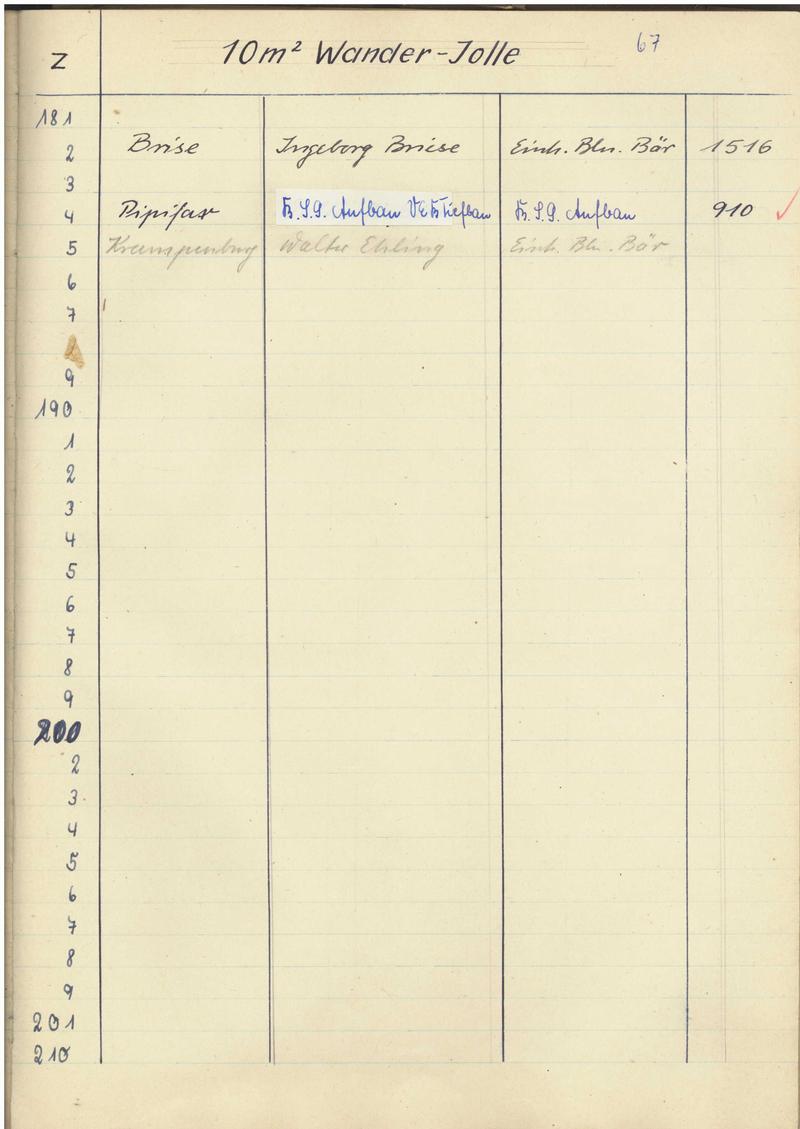 67
Z 10m² Wander-Jolle
181
2 Brise Ingeborg Briese Einh. Bln. Bär 1516
3
4 Pipifax B.S.G. Aufbau VEB Tiefbau B.S.G. Aufbau 910
5 Krampenburg Walter Ehling Einh. Bln. Bär
6
7
9
190
1
2
3
4
5
6
7
8
9
200
2
3
4
5
6
7
8
9
201
210